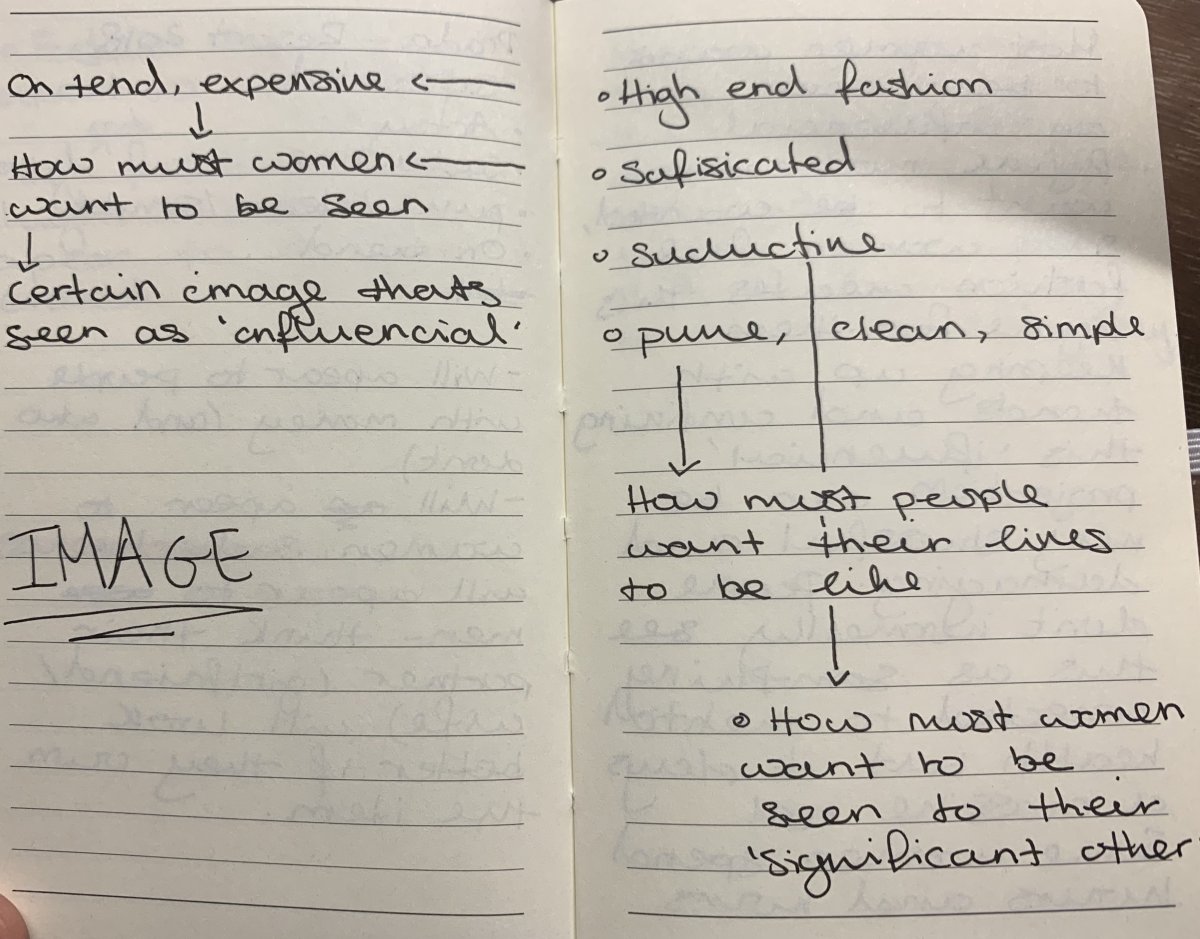 On tend, expensive
How must women
want to be seen
Certain image thats
seen as 'influencial'
IMAGE
High end fashion
Safisicated
Suductive
pure, clean, simple
How most people
want their lives
to be like
How most women
want to be
seen to their
'significant other